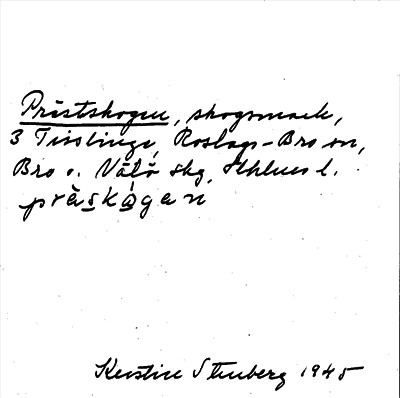 Prästskogen, skogsmark,
3 Tisslinge, Roslags-Bro sn,
Bro o. Vätö skg, Sthlms l.
prä̀skógan
Kerstin Stenberg 1945